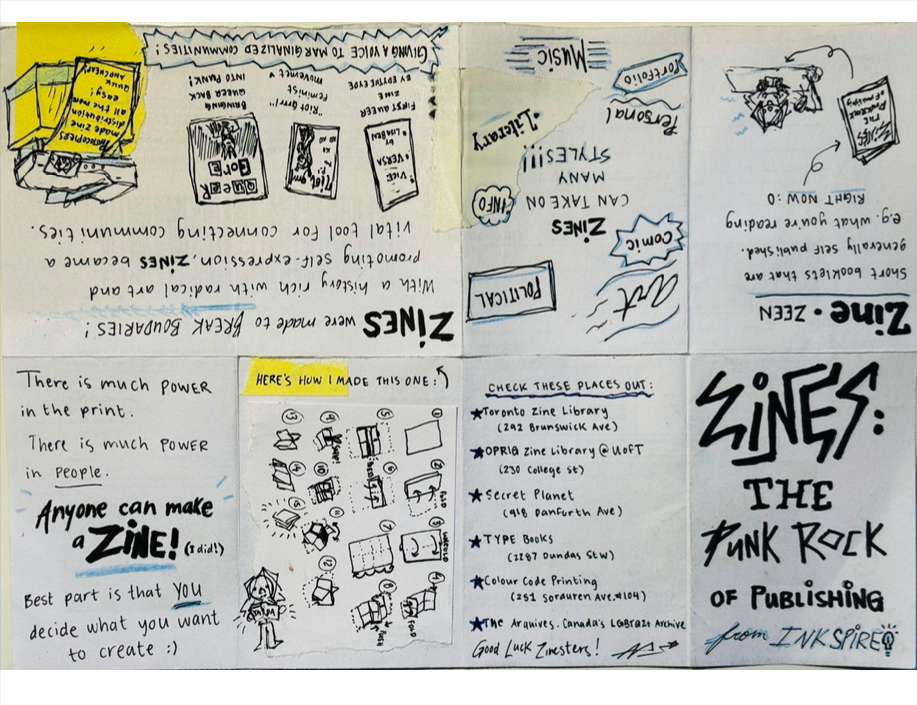 ZiNES:
THE
PUNK ROCK
OF PUBLISHING
from INKSPIRE
Zine • ZEEN
Short booklets that are
generally self published.
e.g. what you're reading
RIGHT NOW :O
art
POLITICAL
Comic
ZiNES
CAN TAKE ON
MANY
STYLES!!!
INFO
• Literary
Personal
Portfolio
Music
ZiNES were made to BREAK BOUDARIES!
With a history rich with radical art and
promoting self-expression, ZiNES became a
vital tool for connecting communities.
VICE
VERSA
by LISABEN
FIRST QUEER
ZINE
BY EYDE
Riot grrl
"Riot grrl"
Feminist
movement
QUEER
Core
BRINGING
QUEER BACK
INTO PUNK!
PHOTOCOPIERS
made zine
distribution
all the more
quick, easy,
AND CHEAP!
GIVING A VOICE TO MARGINALIZED COMMUNITIES!
There is much POWER
in the print.
There is much POWER
in PEOPLE.
Anyone can make
a ZiNE! (I did!)
Best part is that YOU
decide what you want
to create :)
HERE'S HOW I MADE THIS ONE:
1
2
FOLD
3
UNFOLD
4
FOLD
5
6
7
8
PUSH
9
10
11
12
13
14
15
CHECK THESE PLACES OUT:
★Toronto Zine Library
(292 Brunswick Ave)
★OPRIG Zine Library @ UOFT
(230 College St)
★Secret Planet
(918 Danforth Ave)
★TYPE Books
(2887 Dundas St W)
★Colour Code Printing
(251 Sorauren Ave. #104)
★The Arquives. Canada's LGBTQ2+ Archive
Good Luck Zinesters!